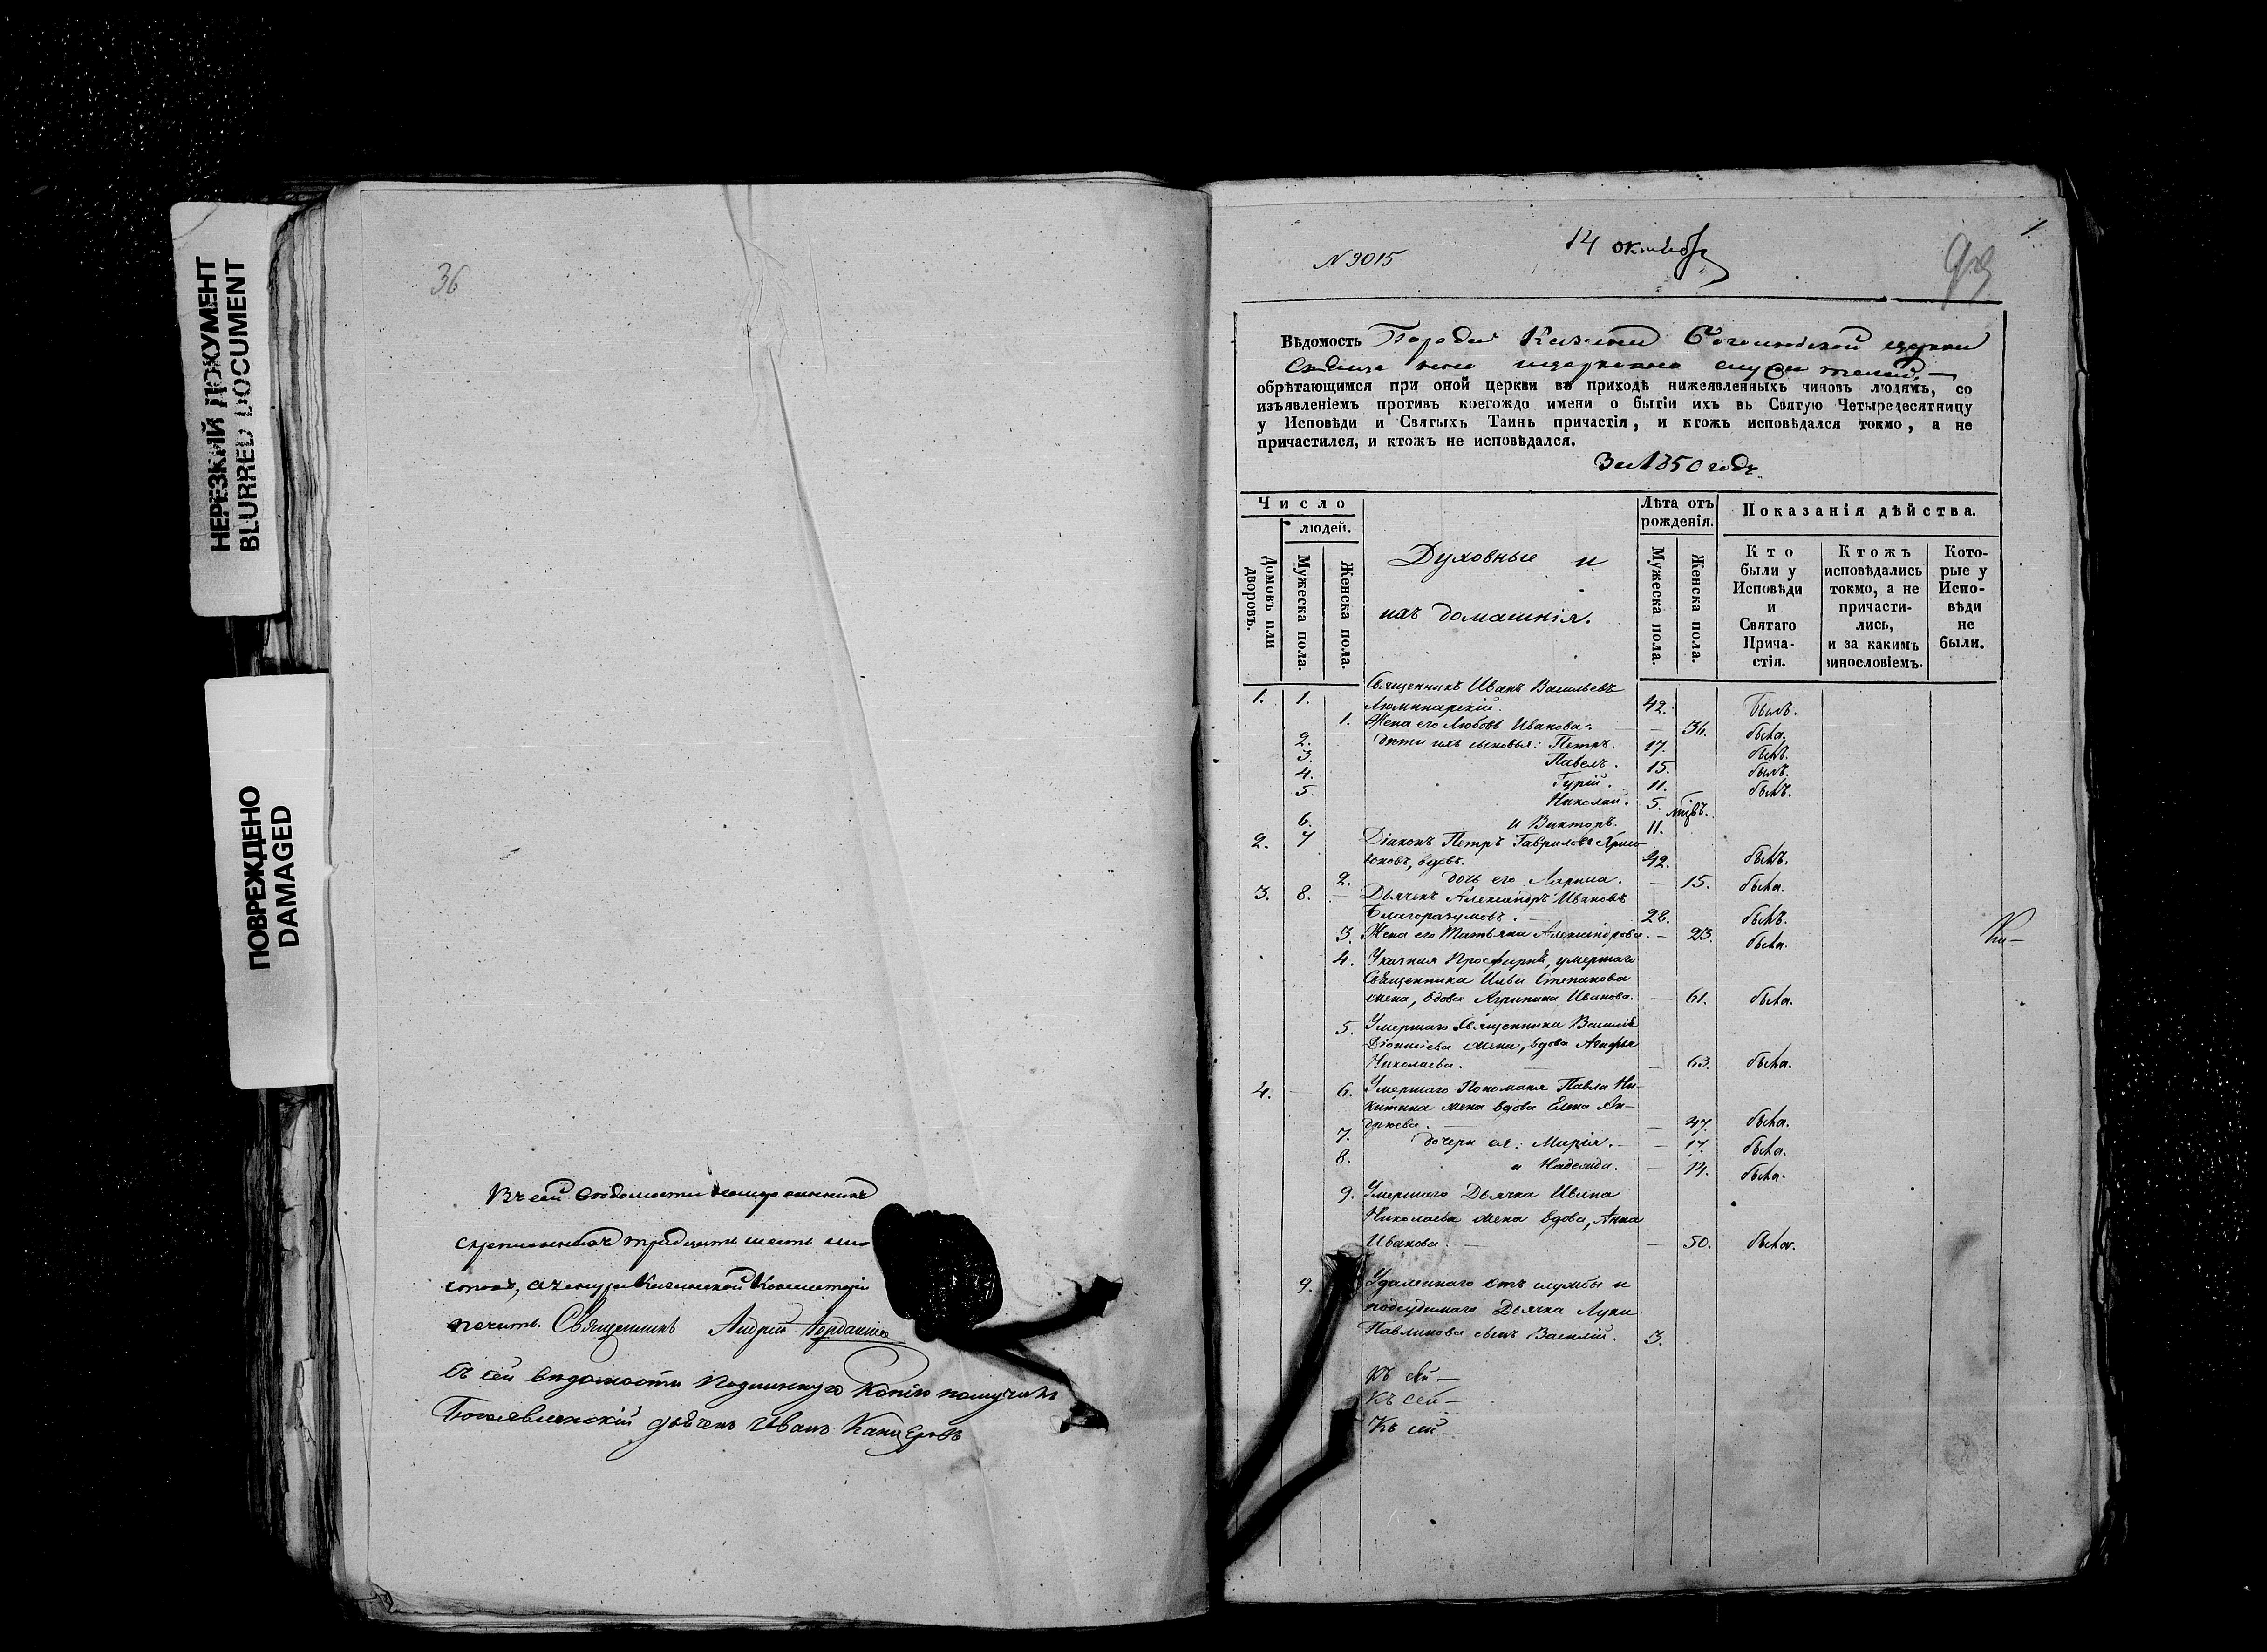 НЕРЕЗКИЙ ДОКУМЕНТ
BLURRED DOCUMENT
ПОВРЕЖДЕНО
DAMAGED
36
Въ сей ведомости
скрепленныхъ тридцать шесть ли-
стовъ, Казанской Консисторіи
печать. Священникъ Андрей
Съ сей ведомости подлинную копію получилъ
Богоявленскій дьячекъ Иванъ
1.
14 октября
N 9015
Вѣдомость Города Казани церкви
обрѣтающимся при оной церкви въ приходѣ нижеявленныхъ чиновъ людямъ, со
изъявленіемъ противъ коегождо имени о бытіи ихъ въ Святую Четыредесятницу
у Исповѣди и Святыхъ Таинъ причастія, и ктожъ исповѣдался токмо, а не
причастился, и ктожъ не исповѣдался.
За 1850 годъ
Число
людей.
Домовъ или дворовъ.
Мужеска пола.
Женска пола.
Духовные и
ихъ домашнія.
Лѣта отъ рожденія.
Мужеска пола.
Женска пола.
Показанія дѣйства.
Кто были у Исповѣди и Святаго Прича-стія.
Ктожъ исповѣдались токмо, а не причасти-лись, и за какимъ винословіемъ.
Кото-рые у Испо-вѣди не были.
1. 1. Священникъ Иванъ Васильевъ
Люминарскій. 42. былъ.
1. Жена его Любовь Иванова. — 36. была.
2. дѣти ихъ сыновья: Петръ. 17. былъ.
3. Павелъ. 15. былъ.
4. Гурій. 11. былъ.
5. Николай. 5.
6. и Викторъ. 11.
2. 7 Діаконъ Петръ Гавриловъ
вдовъ. 42. былъ.
2. дочь его Лариса. — 15. была.
3. 8. — Дьячекъ Александръ Ивановъ
Благоразумовъ. — 28. былъ.
3. Жена его Татьяна Александрова. — 23. была.
4. Указная Просфирня, умершаго
Священника Ильи Степанова
жена, вдова Агрипина Иванова. — 61. была.
5. Умершаго Священника Василія
Діонисіева жена, вдова Агафья
Николаева. — 63. была.
4. — 6. Умершаго Пономаря Павла Ни-
китина жена вдова Елена Ан-
дреева. — 47. была.
7. дочери ея: Марія. — 17. была.
8. и Надежда. — 14. была.
9. Умершаго Дьячка Ивана
Николаева жена вдова, Анна
Иванова. — 50. была.
9. Удаленнаго отъ службы и
подсудимаго Дьячка Луки
Павлинова сынъ Василій. 3.
Къ сей —
Къ сей —
Къ сей —